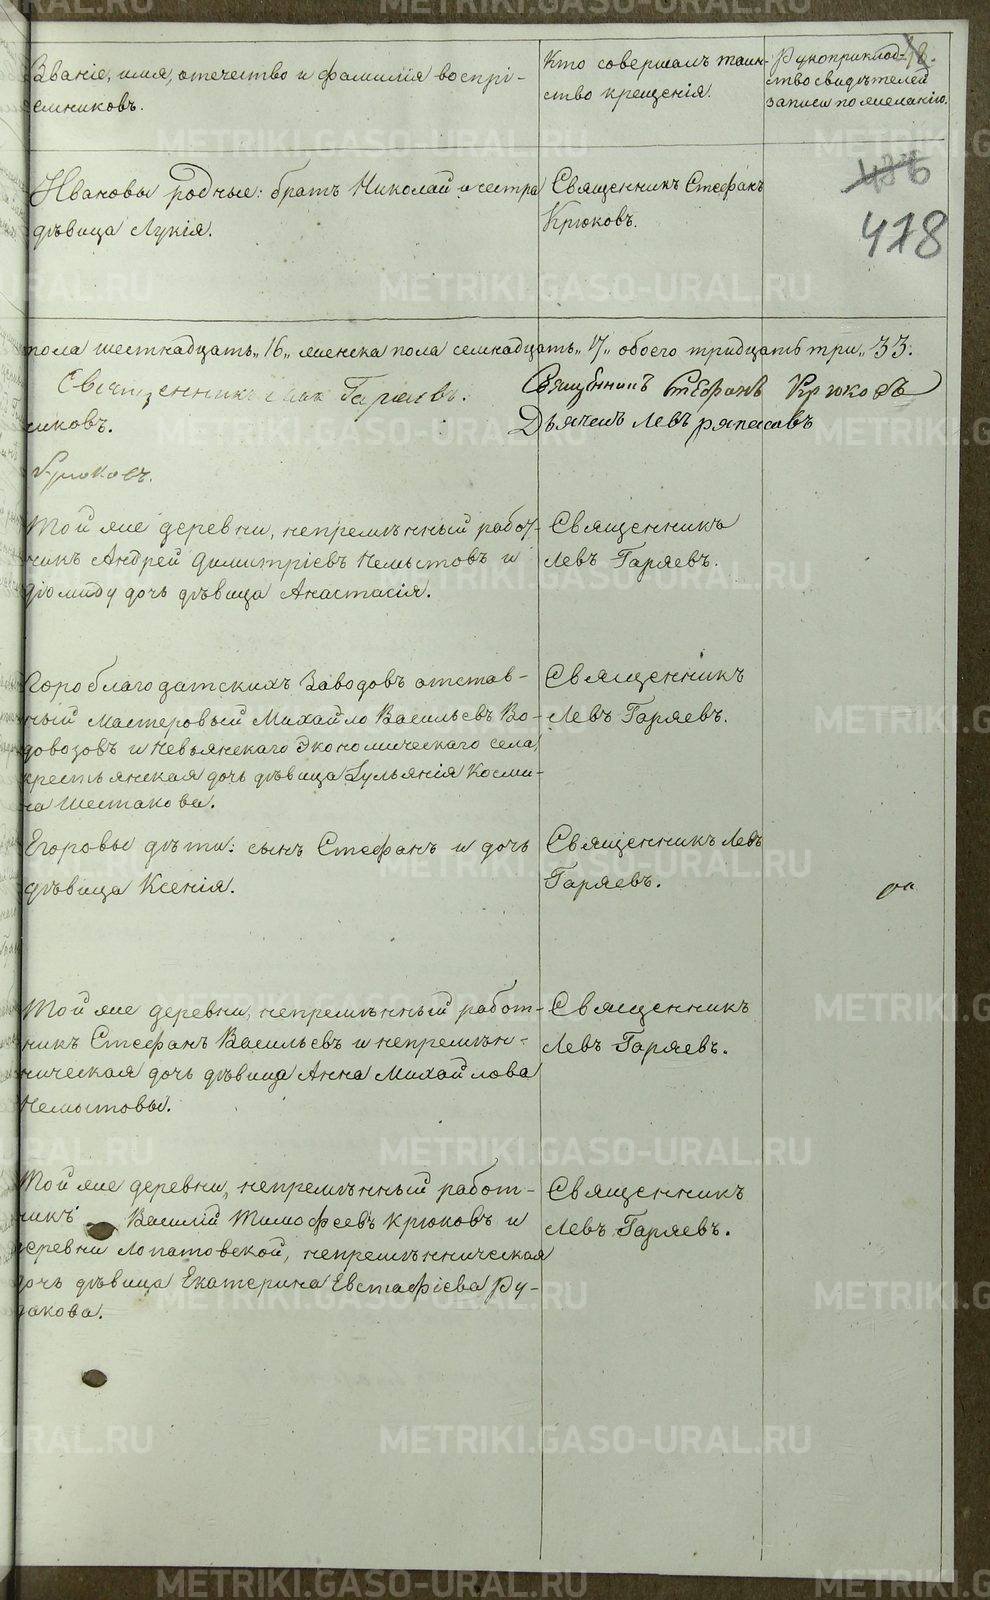 Званіе, имя, отечество и фамилія воспрі-
емниковъ.
Кто совершалъ таин-
ство крещенія.
Рукоприклад-
ство свидѣтелей
записи по желанію.
478
Ивановы родные: братъ Николай и сестра
дѣвица Лукія.
Священникъ Стефанъ
Крюковъ.
пола шестнадцать „16„ женска пола семнадцать „17„ обоего тридцать три „33.
Священникъ Гаряевъ.
Священникъ Стефанъ Крюковъ
Дьячекъ Левъ
Крюковъ.
Той же деревни, непремѣнный работ-
никъ Андрей Димитріевъ Немытовъ и
дочь дѣвица Анастасія.
Священникъ
Левъ Гаряевъ.
Гороблагодатскихъ Заводовъ отстав-
ный мастеровый Михайло Васильевъ Во-
довозовъ и Невьянскаго Экономическаго села,
крестьянская дочь дѣвица Іульянія Косми-
на Шестакова.
Священникъ
Левъ Гаряевъ.
Егоровы дѣти: сынъ Стефанъ и дочь
дѣвица Ксенія.
Священникъ Левъ
Гаряевъ.
Той же деревни, непремѣнный работ-
никъ Стефанъ Васильевъ и непремѣн-
ническая дочь дѣвица Анна Михайлова
Немытовы.
Священникъ
Левъ Гаряевъ.
Той же деревни, непремѣнный работ-
никъ Василій Тимофеевъ Крюковъ и
деревни Лопатовской, непремѣнническая
дочь дѣвица Екатерина Евстафіева Ру-
дакова.
Священникъ
Левъ Гаряевъ.
METRIKI.GASO-URAL.RU